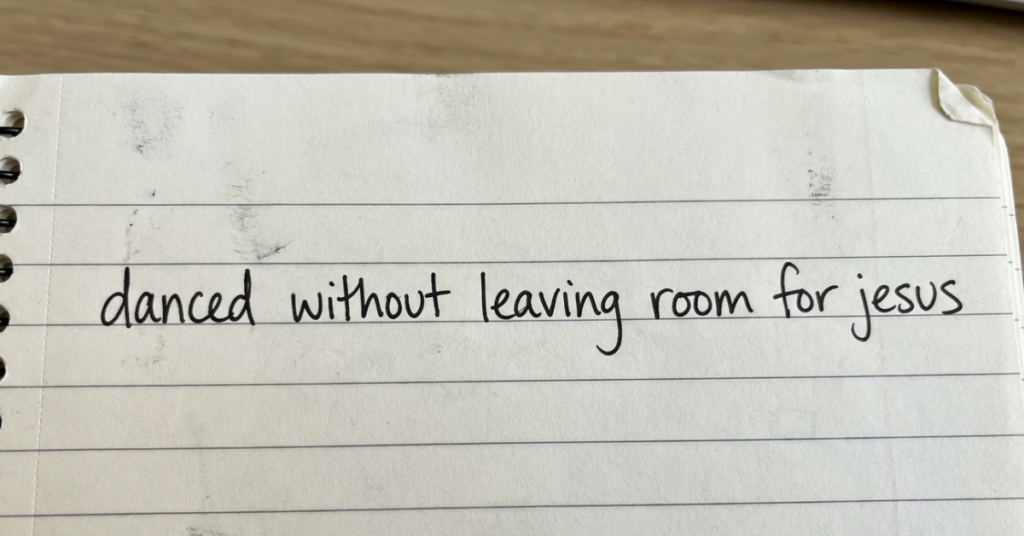 danced without leaving room for jesus